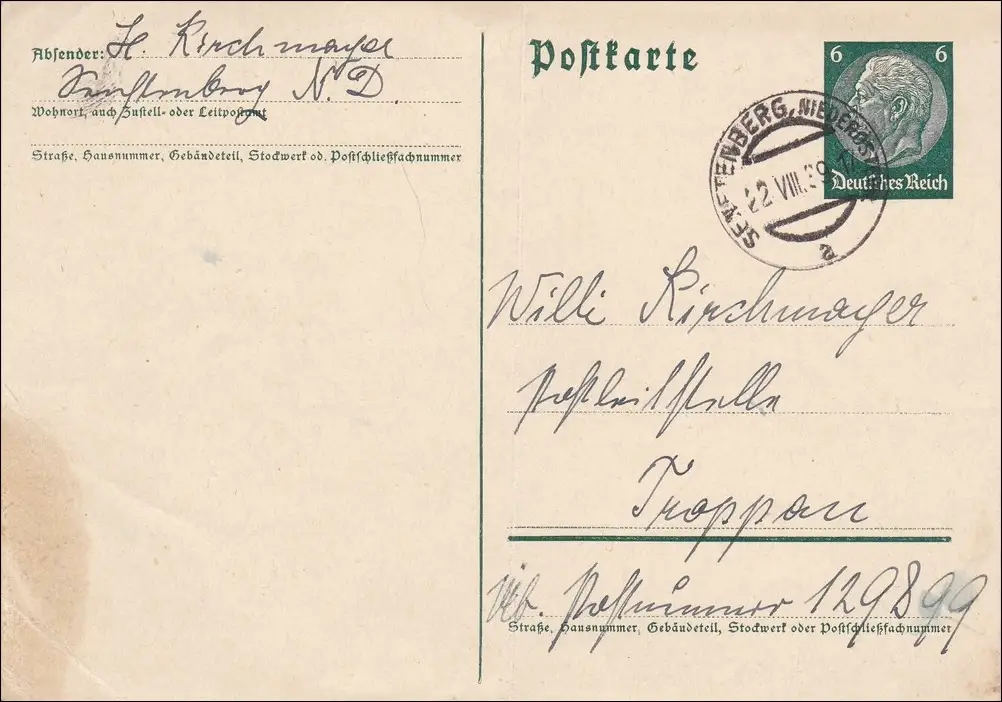 Absender: H. Kirchmayer
Senftenberg N. D.
Wohnort, auch Zustell- oder Leitpostamt
Straße, Hausnummer, Gebäudeteil, Stockwerk od. Postschließfachnummer
Postkarte
6 6
Deutsches Reich
SENFTENBERG, NIEDERDONAU
22.VIII.39
a
Willi Kirchmayer
Postleitstelle
Troppau
Postnummer 129899
Straße, Hausnummer, Gebäudeteil, Stockwerk oder Postschließfachnummer